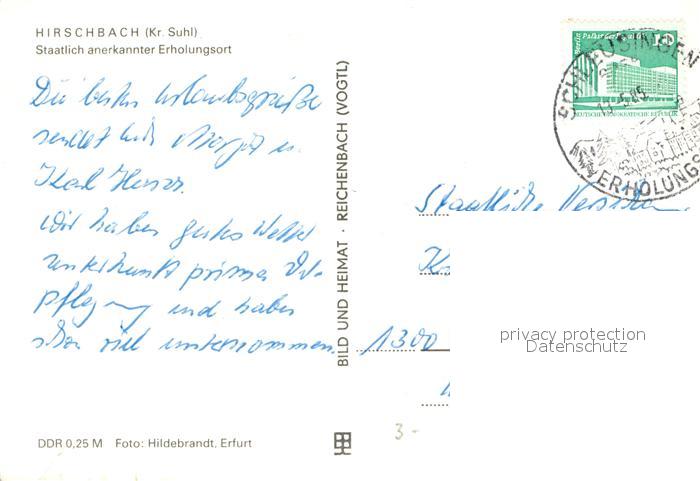 HIRSCHBACH (Kr. Suhl)
Staatlich anerkannter Erholungsort
Die besten Urlaubsgrüße
sendet Euch Margot u.
Karl Heinz.
Wir haben gutes Wetter
Unterkunft prima
pflegung und haben
schon viel unternommen.
BILD UND HEIMAT · REICHENBACH (VOGTL)
SCHLEUSINGEN
Berlin, Palast der Republik
10
DEUTSCHE DEMOKRATISCHE REPUBLIK
ERHOLUNGS
Staatliche
1300
privacy protection
Datenschutz
3-
DDR 0,25 M Foto: Hildebrandt, Erfurt